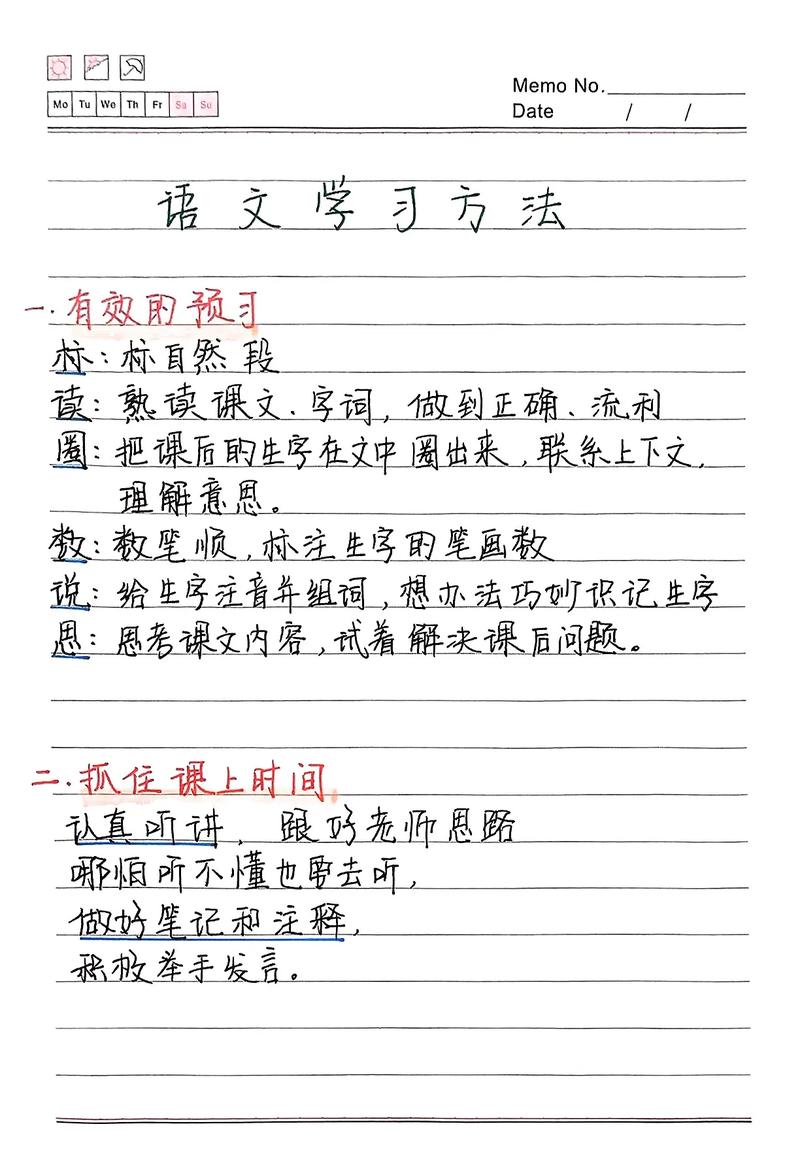 Memo No.
Mo Tu We Th Fr Sa Su
Date / /
语文学习方法
一.有效的预习
标:标自然段
读:熟读课文、字词,做到正确、流利
圈:把课后的生字在文中圈出来,联系上下文,
理解意思。
数:数笔顺,标注生字的笔画数
说:给生字注音并组词,想办法巧妙识记生字
思:思考课文内容,试着解决课后问题。
二.抓住课上时间
认真听讲,跟好老师思路
哪怕听不懂也要去听,
做好笔记和注释,
积极举手发言。